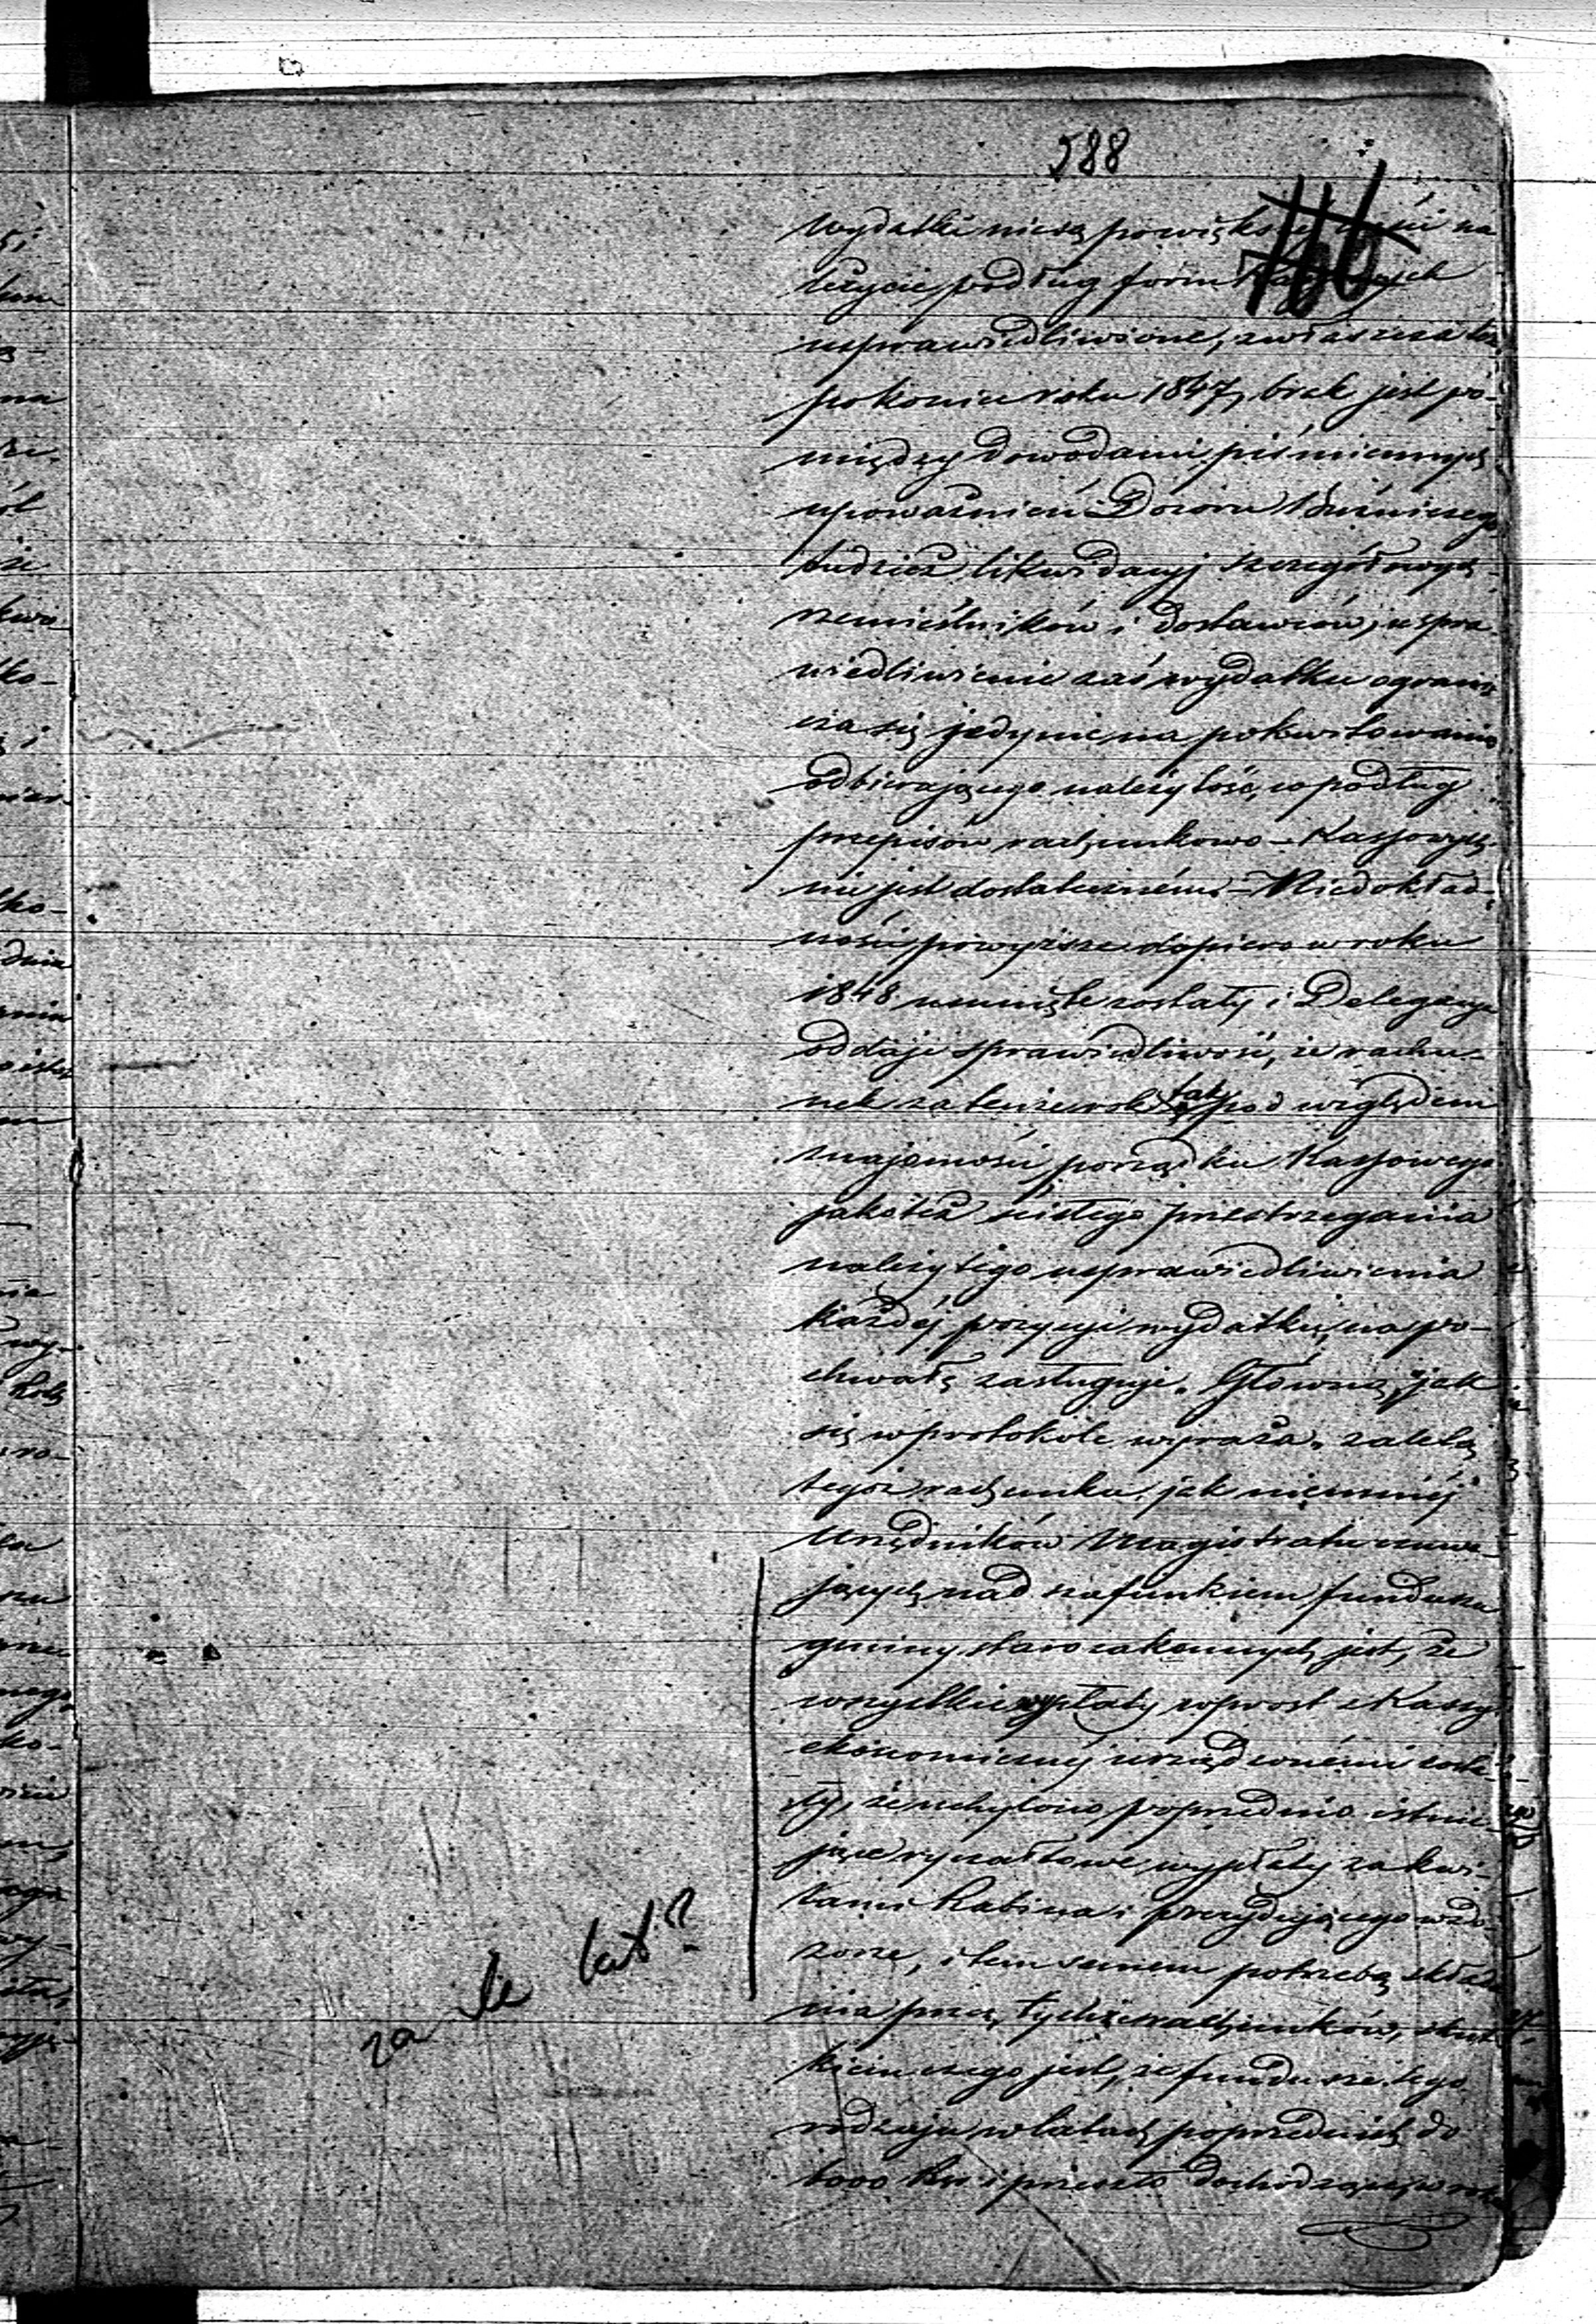 588
166
wydatki nie są powiększéj części na
leżycie podług form Kassowych
usprawiedliwione, zwłaszcza też
po koniec roku 1847, brak jest po-
między dowodami piśmiennych
upoważnień Dozoru Bóżniczego
tudzież likwidacyj szczegółowych
rzemieślników i dostawców, uspra-
wiedliwienie zaś wydatku ograni-
cza się jedynie na pokwitowaniu
odbierającego należytość, co podług
przepisów rachunkowo-Kassowych
nie jest dostateczném. – Niedokład-
ności powyższe dopiero w roku
1848 usunięte zostały i Delegacya
oddaje sprawiedliwość, że rachu-
nek za tenże rok tak pod względem
znajomości porządku Kassowego
jakoteż ścisłego przestrzegania
należytego usprawiedliwienia
każdéj pozycyi wydatku, na po-
chwałę zasługuje. Główną, jak
się w protokóle wyraża, zaletą
tegoż rachunku jak niemniéj
Urzędników Magistratu czuwa-
jących nad szafunkiem funduszu
gminy starozakonnych jest, że
wszystkie wypłaty wprost z Kassy
ekonomicznéj urządzonémi zosta-
ły, że uchylono poprzednio istnie-
jące ryczałtowe wypłaty za kwi-
tami Rabina i prezydującego w do-
zorze, i tem samem potrzebę składa-
nia przez tychże rachunków, skut-
kiem czego jest, że fundusze tego
rodzaju w latach poprzednich do
1000 Rsr. i przeszło dochodzące, w roku
za te lat?